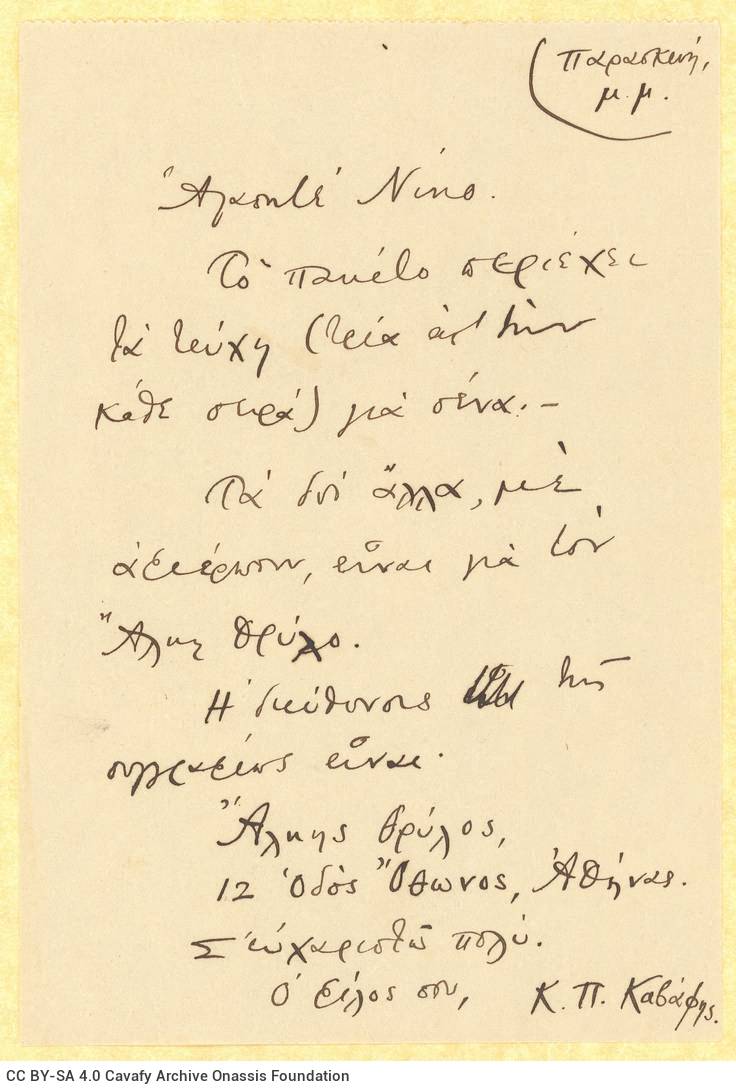 Παρασκευή,
μ.μ.
Ἀγαπητέ Νίκο.
Τὸ πακέτο περιέχει
τὰ τεύχη (τρία ἀπ' τὴν
κάθε σειρά) γιὰ σένα.—
Τὰ δυὸ ἄλλα, μὲ
ἀφιέρωσιν, εἶναι γιὰ τὸν
Ἄλκη Θρύλο.
Ἡ διεύθυνσις τῆς
συγγραφέως εἶναι·
Ἄλκης Θρύλος,
12 Ὁδὸς Ὄθωνος, Ἀθήνας.
Σ' εὐχαριστῶ πολύ.
Ὁ φίλος σου, Κ. Π. Καβάφης.
CC BY-SA 4.0 Cavafy Archive Onassis Foundation